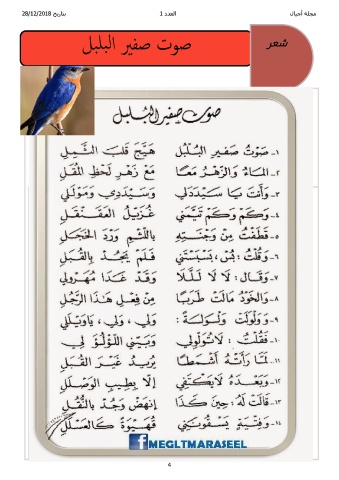 مجلة أجيال العدد 1 بتاريخ 28/12/2018
شعر
صوت صفير البلبل
صوت صفير البلبل
١- صَوْتُ صَفِيرِ البُلْبُلِ هَيَّجَ قَلْبَ الثَّمِلِ
٢- المَاءُ وَالزَّهْرُ مَعًا مَعْ زَهْرِ لَحْظِ المُقَلِ
٣- وَأَنْتَ يَا سَيِّدَ لِي وَسَيِّدِي وَمَوْلَى لِي
٤- وَكَمْ وَكَمْ تَيَّمَنِي غُزَيِّلُ العَقَنْقَلِ
٥- قَطَفْتُ مِنْ وَجْنَتِهِ بِاللَّثْمِ وَرْدَ الخَجَلِ
٦- وَقُلْتُ: بَسْ، بَسْبَسْتَنِي فَلَمْ يَجُدْ بِالقُبَلِ
٧- وَقَالَ: لَا لَا لَلَلَا وَقَدْ غَدَا مُهَرْوِلِ
٨- وَالخَوْدُ مَالَتْ طَرَبًا مِنْ فِعْلِ هَذَا الرَّجُلِ
٩- وَوَلْوَلَتْ وَلْوَلَةً: وَلِي، وَلِي، يَاوَيْلَلِي
١٠- فَقُلْتُ: لَا تُوَلْوِلِي وَبَيِّنِي اللُّؤْلُؤَ لِي
١١- لَمَّا رَأَتْهُ أَشْمَطَا يُرِيدُ غَيْرَ القُبَلِ
١٢- وَبَعْدَهُ لَا يَكْتَفِي إِلَّا بِطِيبِ الوَصْلِ لِي
١٣- قَالَتْ لَهُ: حِينَ كَذَا انْهَضْ وَجُدْ بِالنُّقَلِ
١٤- وَفِتْيَةٍ يَسْقُونَنِي قُهَيْوَةً كَالعَسَلِ
MEGLTMARASEEL
4